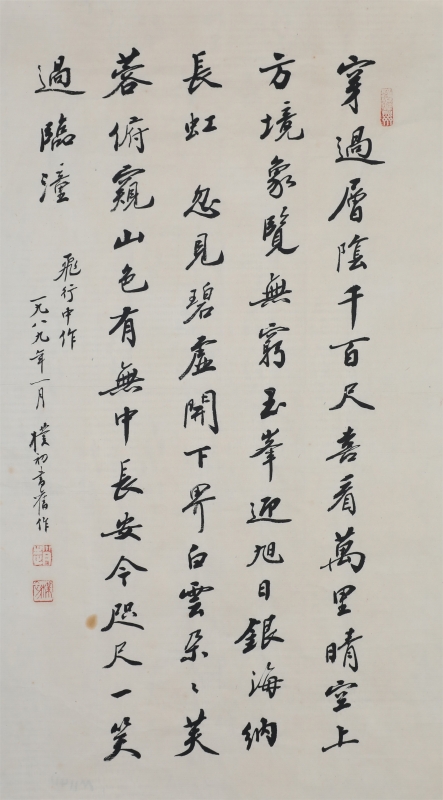 穿過層陰千百尺喜看萬里晴空上
方境象覽無窮玉峯迎旭日銀海納
長虹　忽見碧虛開下界白雲朵〻芙
蓉俯窺山色有無中長安今咫尺一笑
過臨潼
飛行中作
一九八九年一月　樸初書舊作